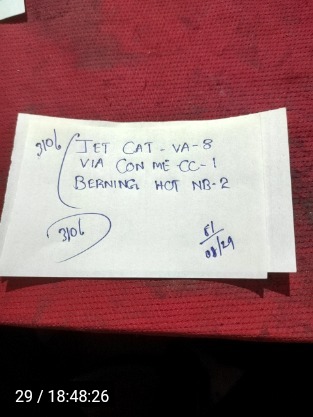 3106
JET CAT - VA-8
VIA CON ME CC-1
BERNING HOT NB-2
3106
08/29
29 / 18:48:26